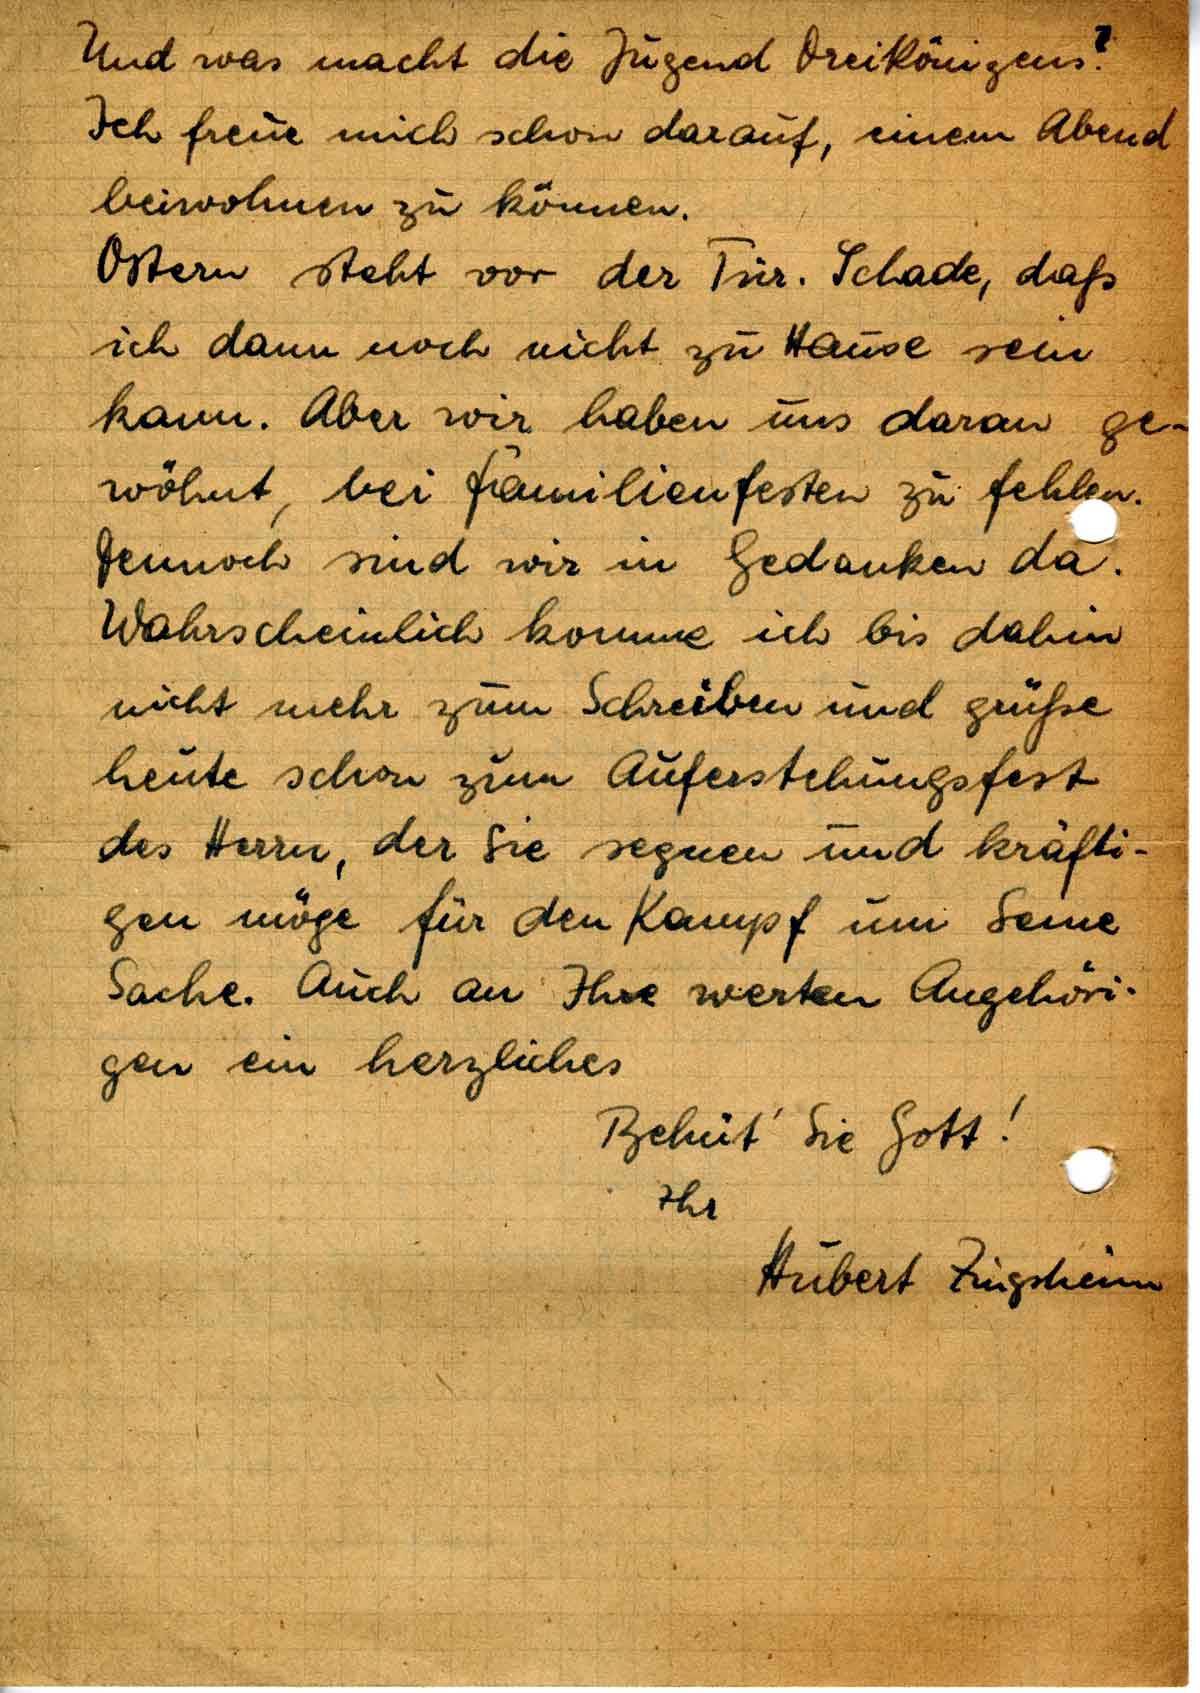 Und was macht die Jugend Dreikönigens?
Ich freue mich schon darauf, einem Abend
beiwohnen zu können.
Ostern steht vor der Tür. Schade, daß
ich dann noch nicht zu Hause sein
kann. Aber wir haben uns daran ge-
wöhnt, bei Familienfesten zu fehlen.
Dennoch sind wir in Gedanken da.
Wahrscheinlich komme ich bis dahin
nicht mehr zum Schreiben und grüße
heute schon zum Auferstehungsfest
des Herrn, der Sie segnen und kräfti-
gen möge für den Kampf um Seine
Sache. Auch an Ihre werten Angehöri-
gen ein herzliches
Behüt' Sie Gott!
Ihr
Hubert Zingsheim